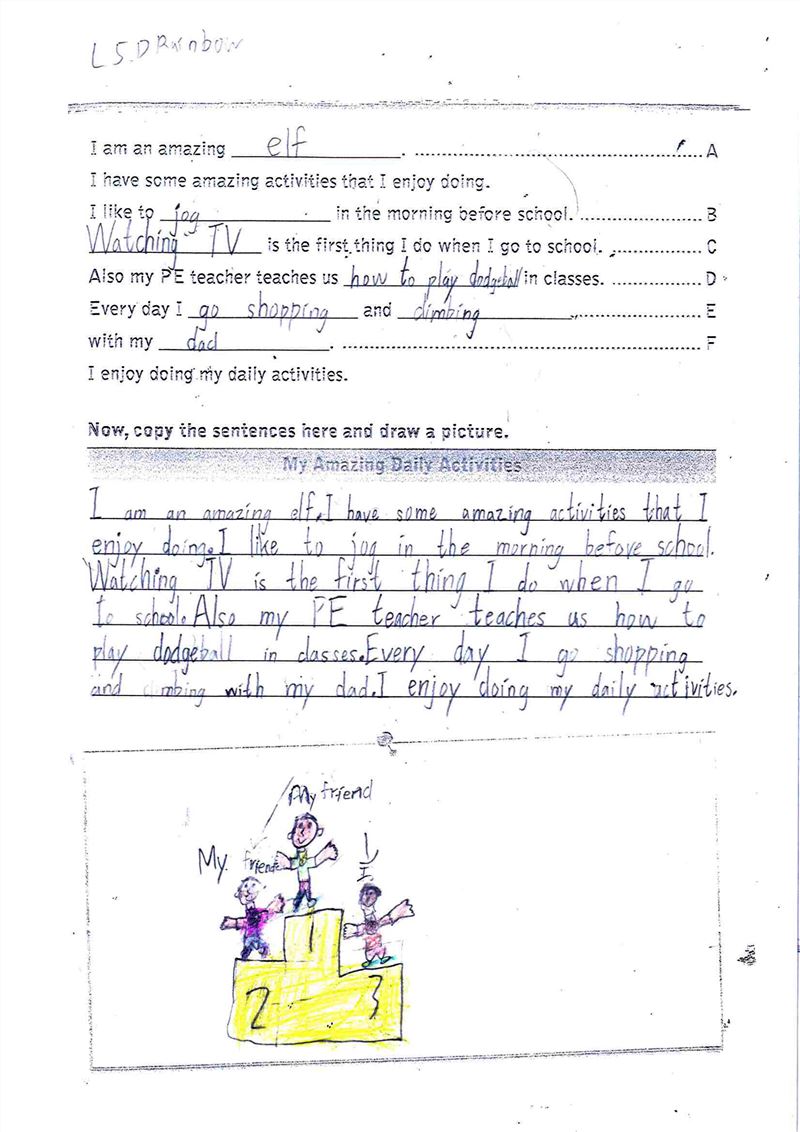 L 5.D Rainbow
I am an amazing elf. A
I have some amazing activities that I enjoy doing.
I like to jog in the morning before school. B
Watching TV is the first thing I do when I go to school. C
Also my PE teacher teaches us how to play dodgeball in classes. D
Every day I go shopping and climbing E
with my dad. F
I enjoy doing my daily activities.
Now, copy the sentences here and draw a picture.
My Amazing Daily Activities
I am an amazing elf. I have some amazing activities that I
enjoy doing. I like to jog in the morning before school.
Watching TV is the first thing I do when I go
to school. Also my PE teacher teaches us how to
play dodgeball in classes. Every day I go shopping
and climbing with my dad. I enjoy doing my daily activities.
My friend
My friend
I
1
2
3